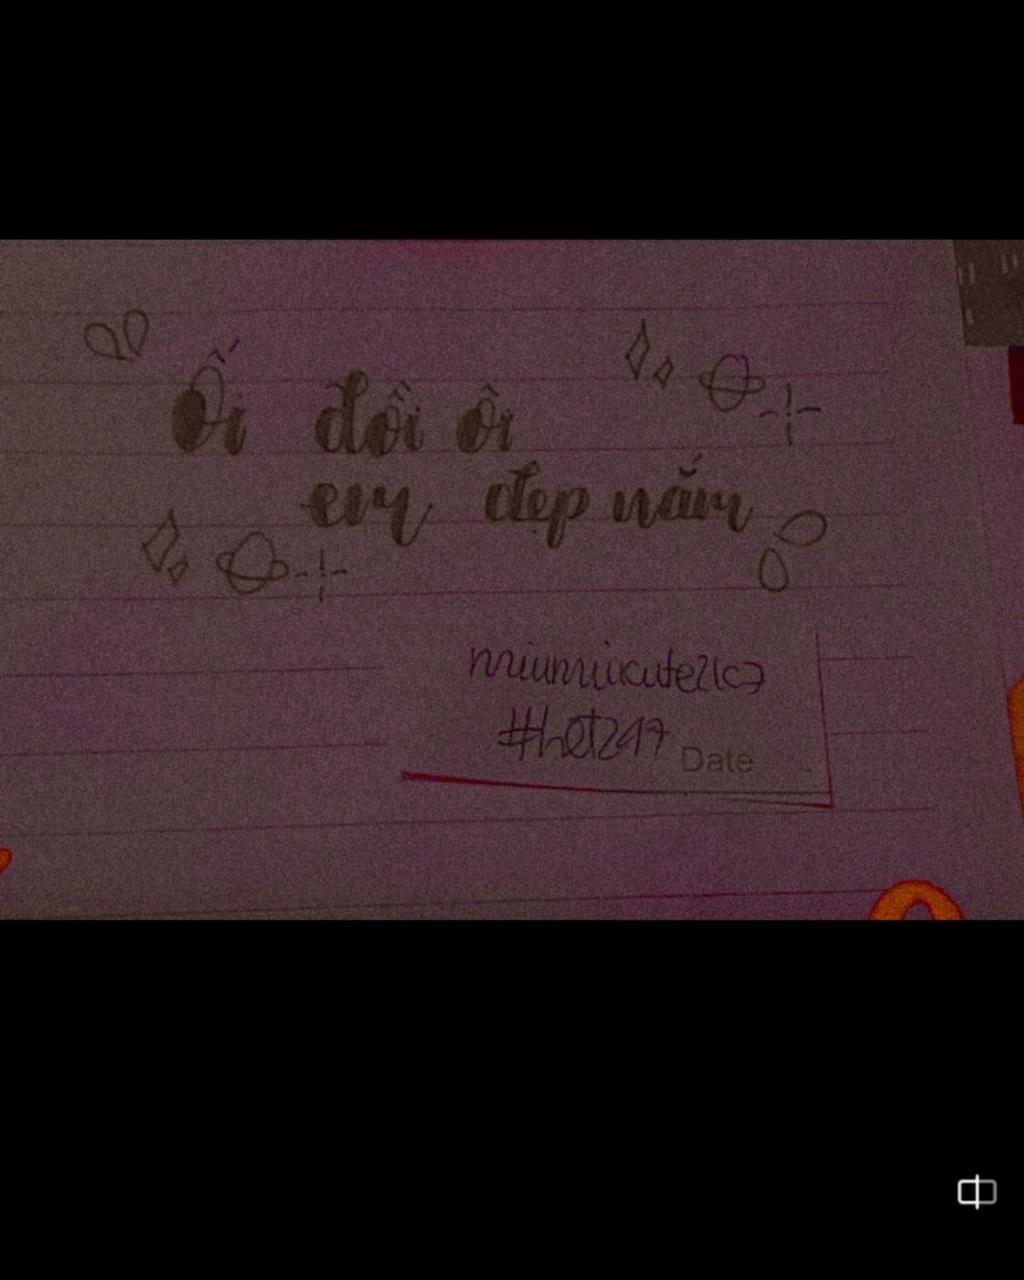 Ối đồi ôi
em đẹp nắm
miumiikute2k7
#het247
Date